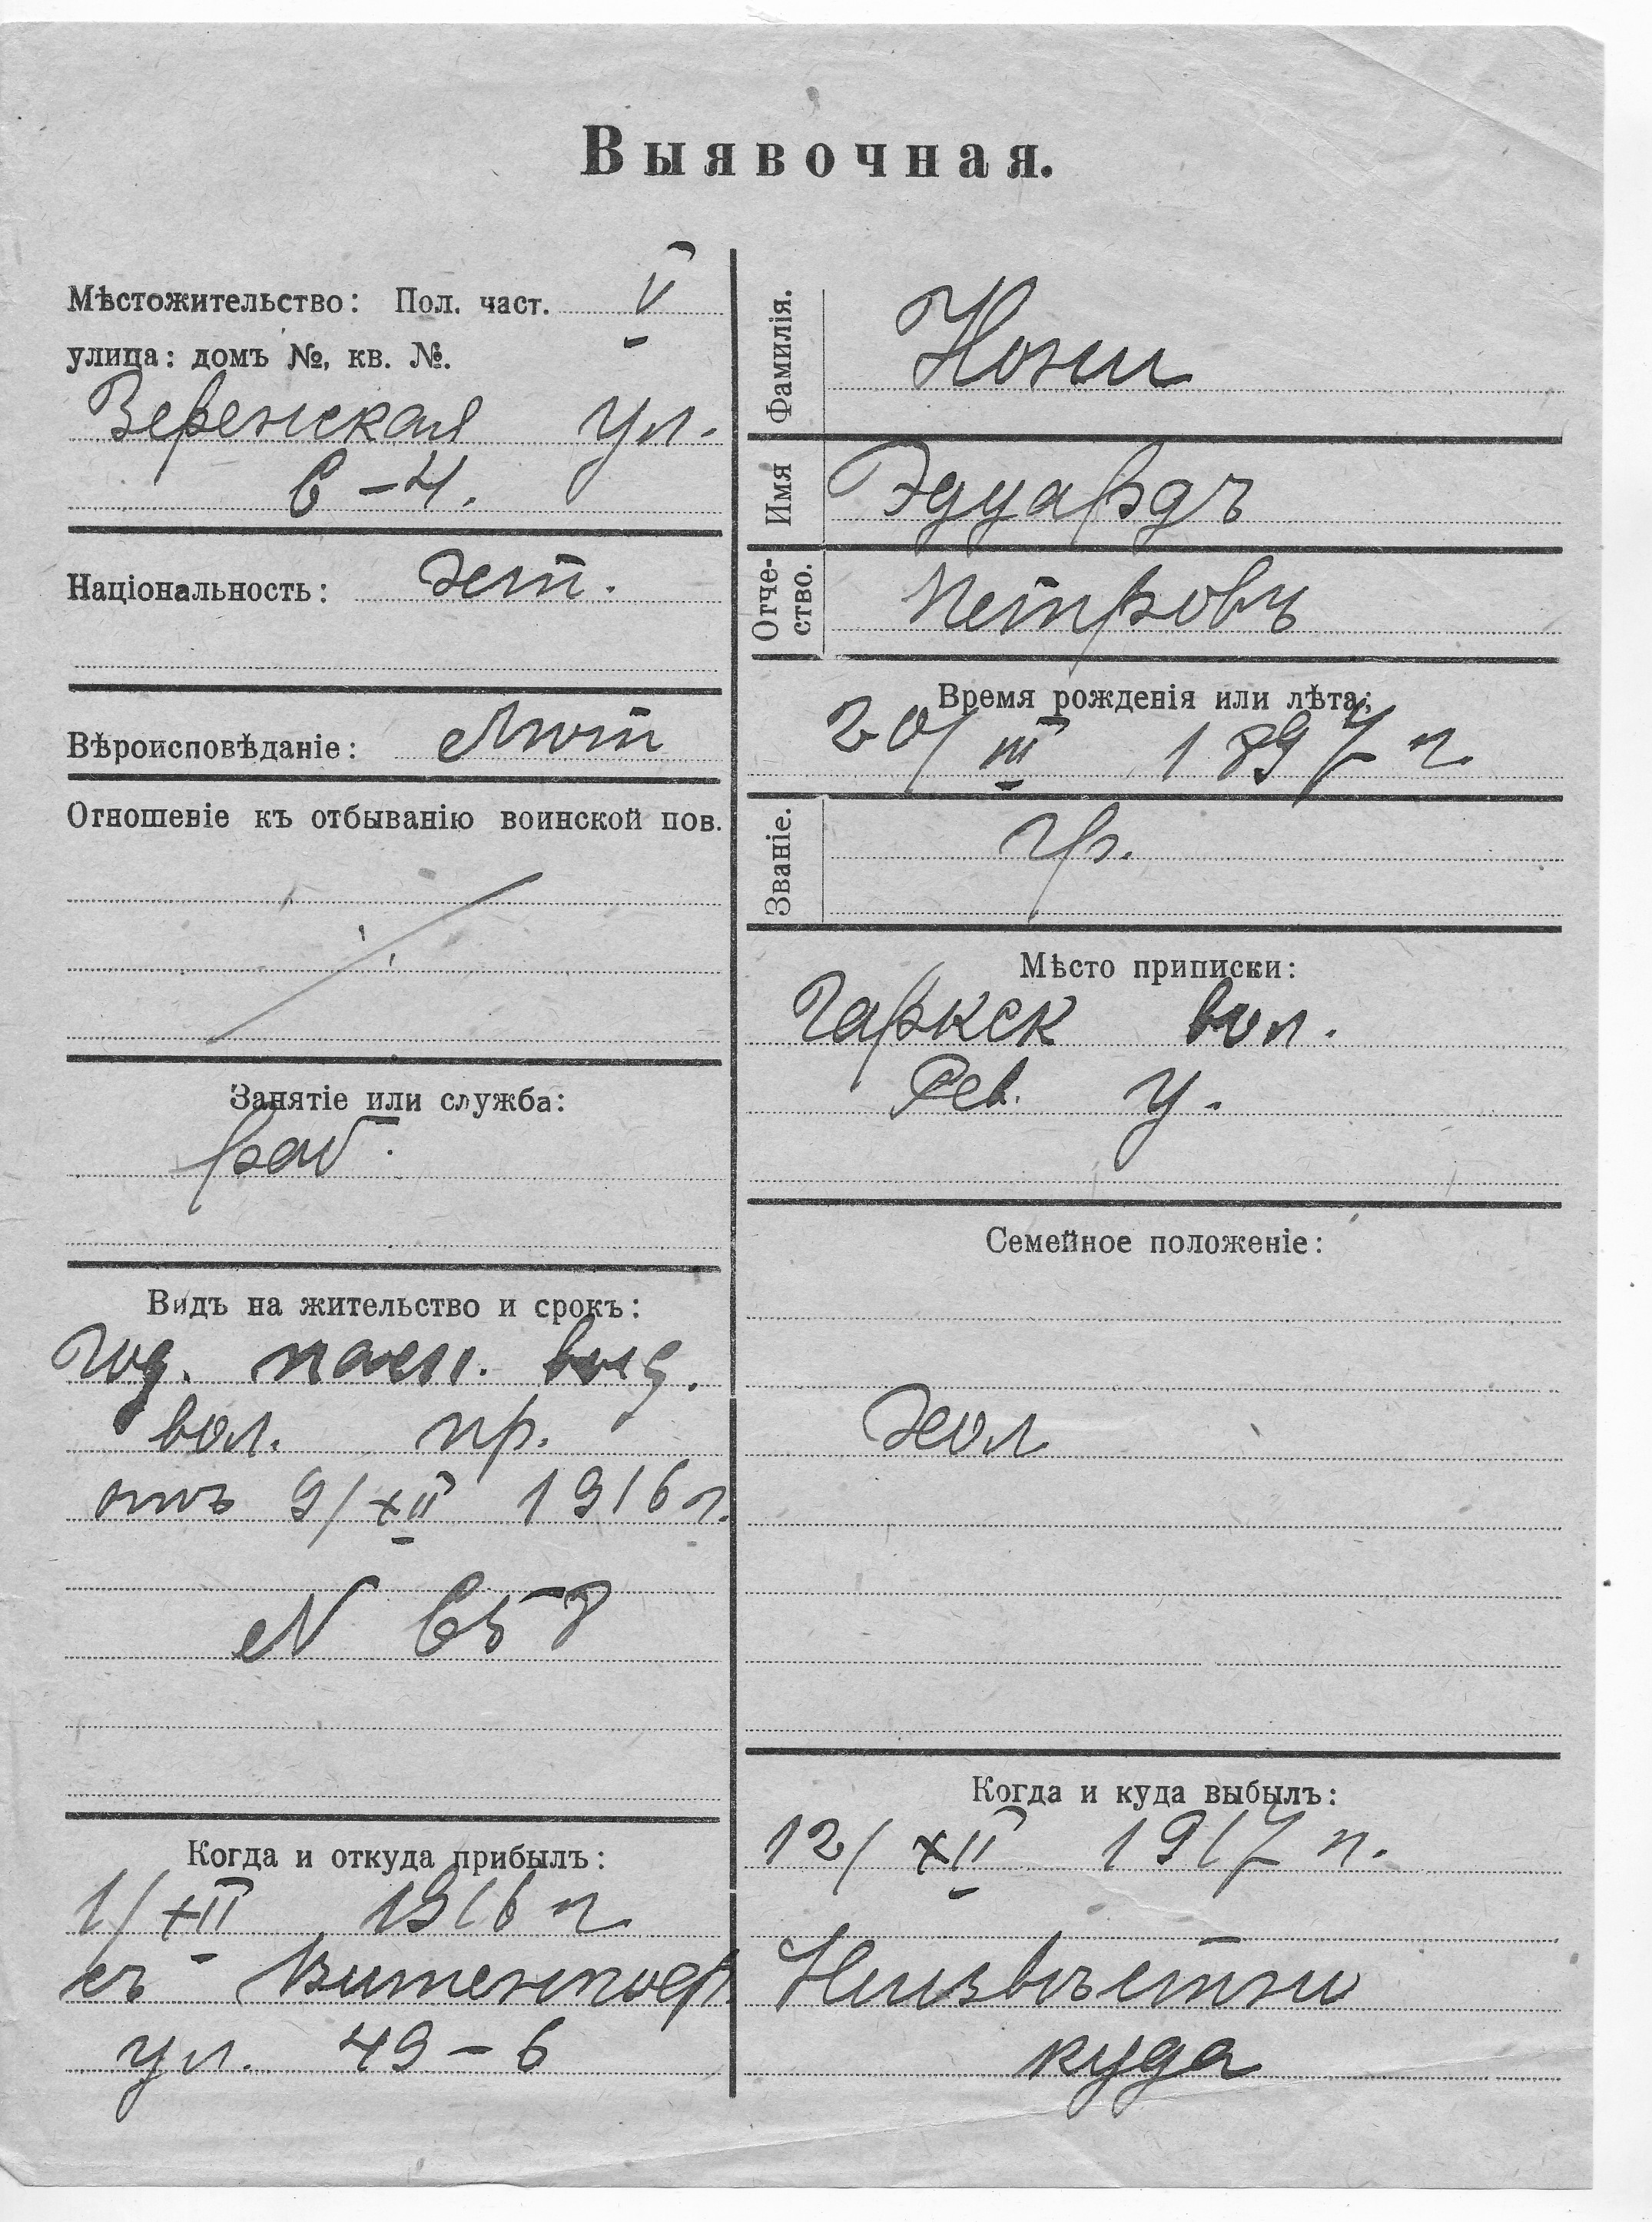 Выявочная.
Мѣстожительство: Пол. част. V
улица: домъ №, кв. №.
Веренская ул.
6 – 4.
Національность: эст.
Вѣроисповѣданіе: Лют
Отношеніе къ отбыванію воинской пов.
Занятіе или служба:
раб.
Видъ на жительство и срокъ:
год. пасп. выд.
вол. пр.
отъ 9/XII 1916 г.
N 658
Когда и откуда прибылъ:
1/XII 1916 г
съ
ул. 49 – 6
Фамилія.
Имя Эдуардъ
Отче-
ство. Петровъ
Время рожденія или лѣта:
20/III 1897 г.
Званіе. гр.
Мѣсто приписки:
Гаркск вол.
Рев. у.
Семейное положеніе:
хол
Когда и куда выбылъ:
12/XII 1917 г.
Неизвѣстно
куда